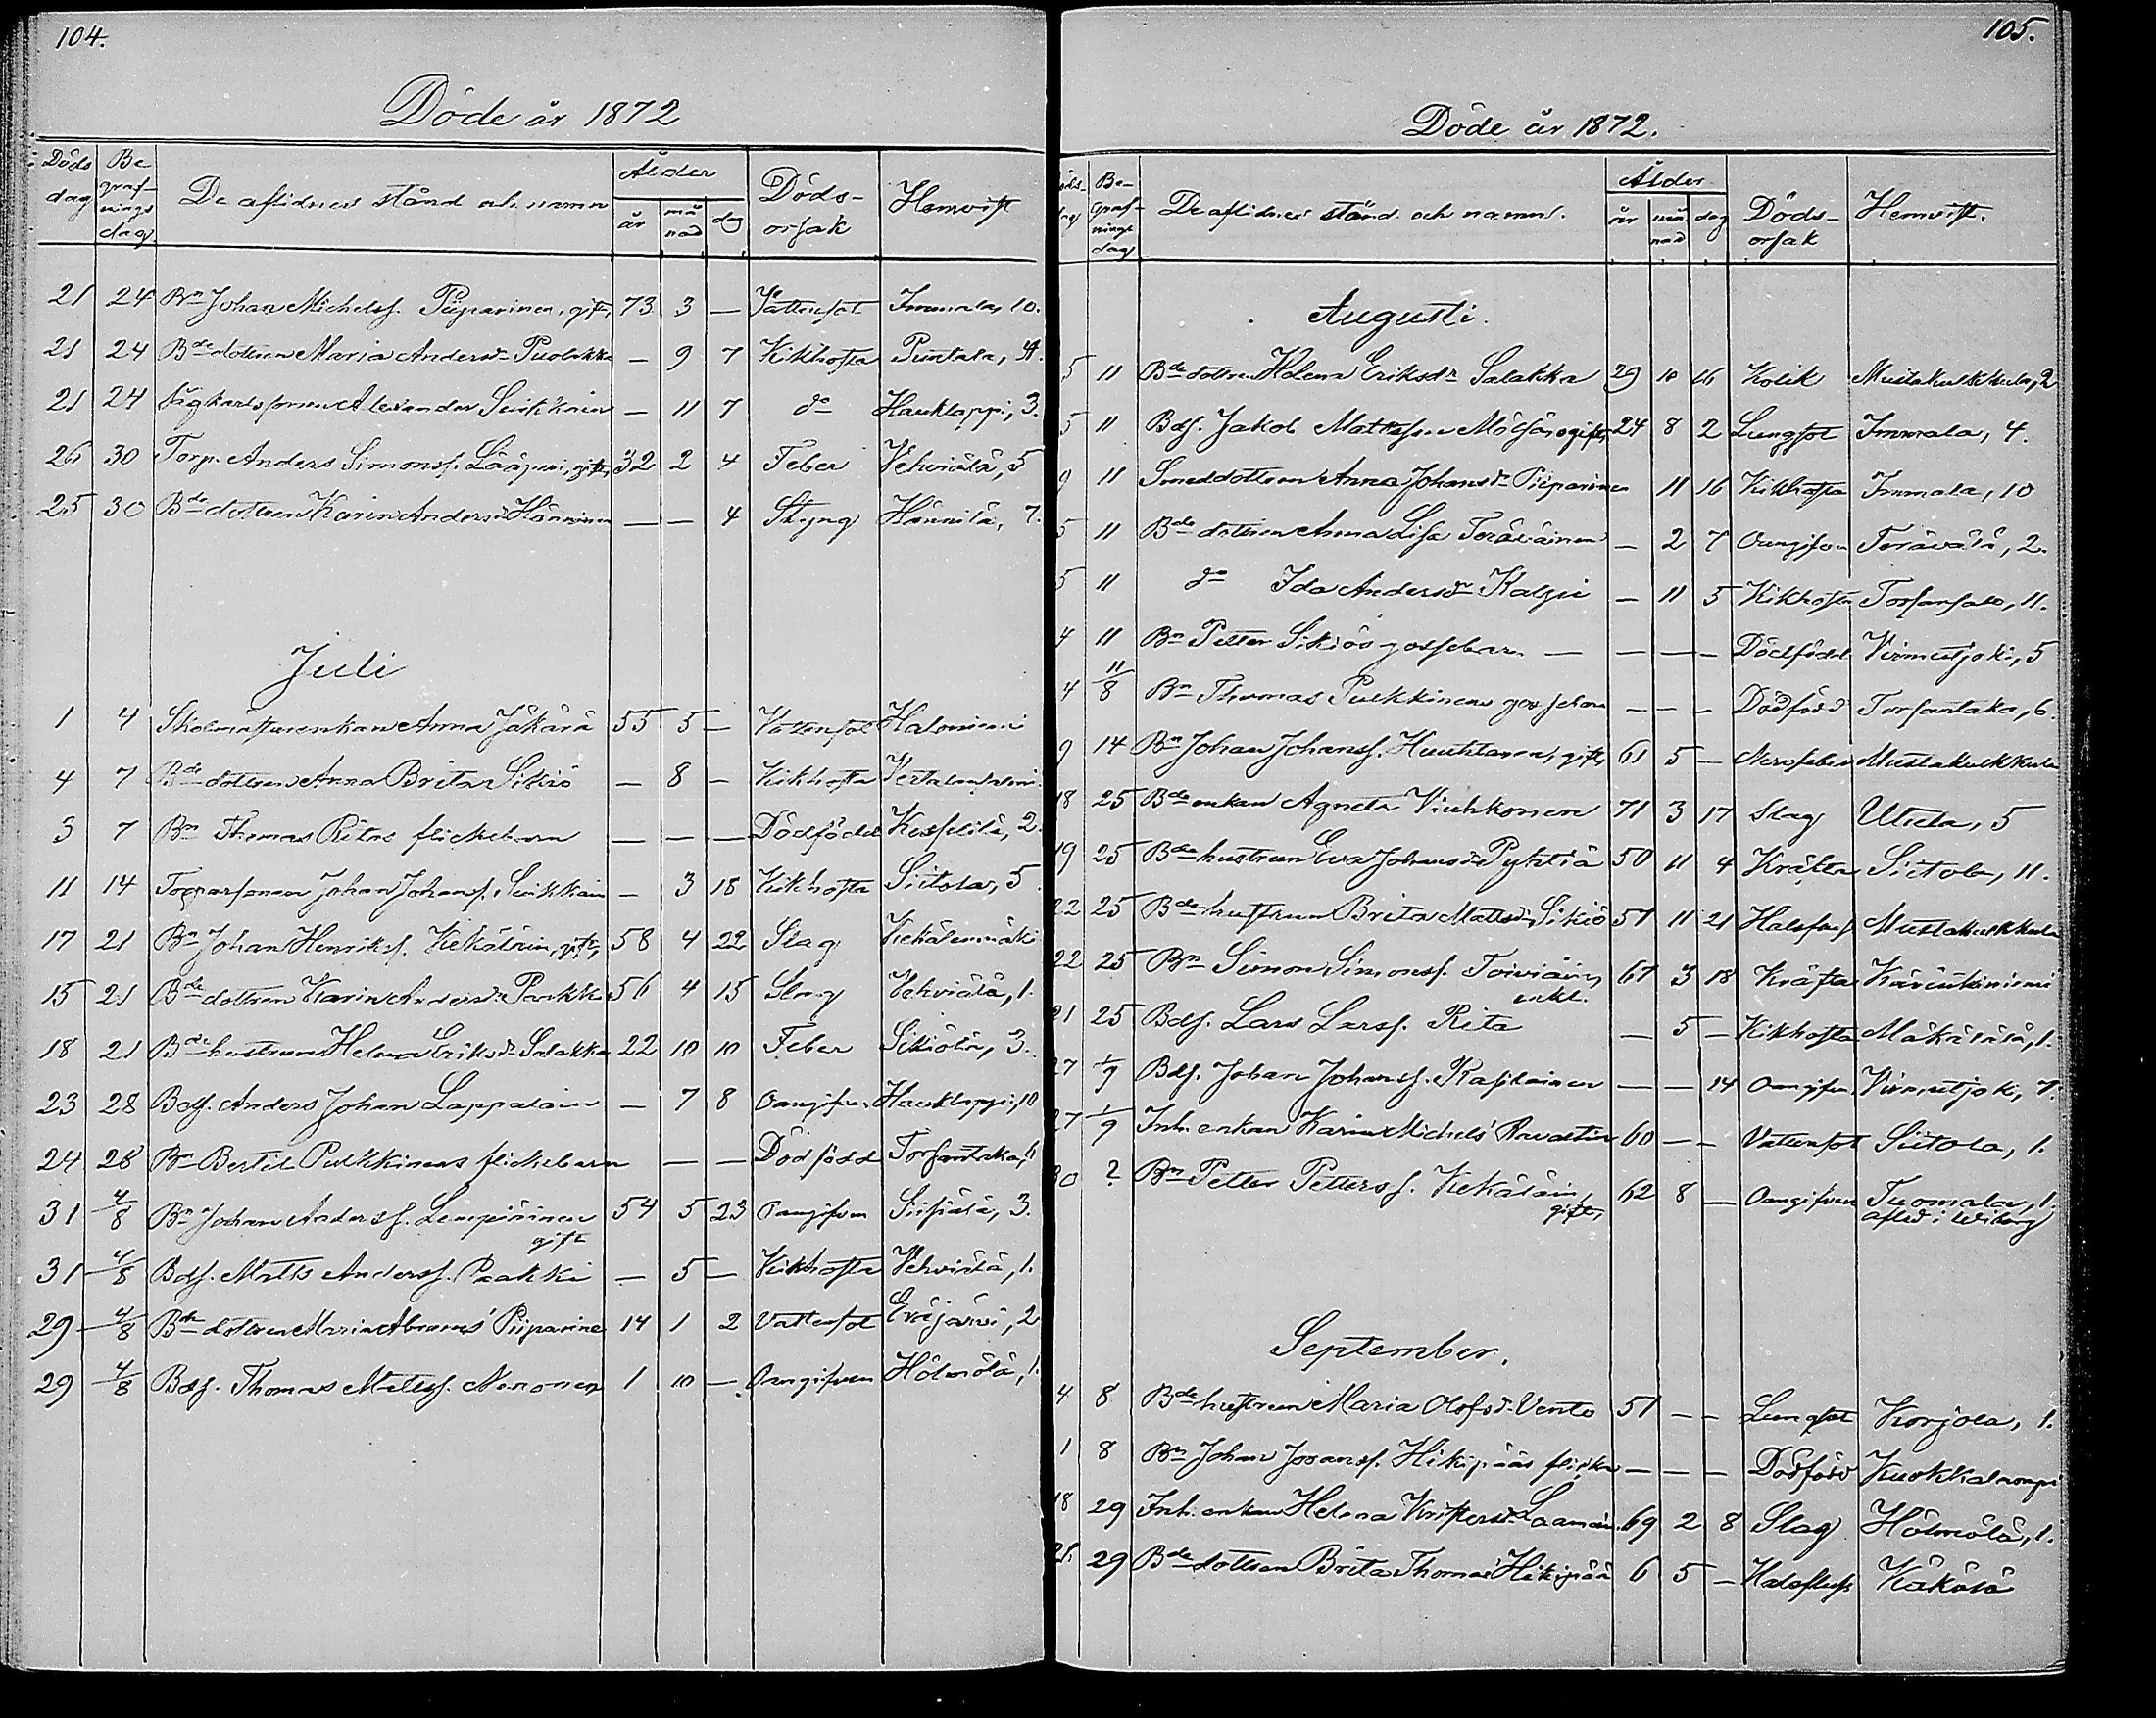 104.
Döde år 1872
Döds dag Begrafnings dag De aflidnes stånd och namn Ålder år månad dag Dödsorsak Hemvist
21 24 Bn Johan Michelss. Piiparinen, gift, 73 3 — Vattusot Immala, 10.
21 24 Bde dottren Maria Andersdr Puolakka — 9 7 Kikhosta Puntala, 4.
21 24 Alexander Suikkain — 11 7 do Hauklappi, 3.
26 30 Torp. Anders Simonss. Lääperi, gift, 32 2 4 Feber Vehviälä, 5
25 30 Bde dottren Karin Andersdr Hänninen — — 4 Styng Hännilä, 7.
Juli
1 4 Anna Jäkärä 55 5 — Vattensot Haloniemi
4 7 Bde dottren Anna Brita Sikiö — 8 — Kikhosta
3 7 Bn Thomas Ritas flickebarn — — — Dödfödd 2.
11 14 Torparsonen Johan Johanss. Suikkain — 3 18 Kikhosta Siitola, 5
17 21 Bn Johan Henrikss. Kekäläin, gift, 58 4 22 Slag Kekäleenmäki
15 21 Bde dottren Karin Andersdr 56 4 15 Slag Vehviälä, 1.
18 21 Bde hustrun Helena Eriksdr Salakka 22 10 10 Feber Sikiölä, 3.
23 28 Bds. Anders Johan Lappalain — 7 8 Oangifven Hauklappi, 10
24 28 Bn Bertil Pulkkinens flickebarn — — Dödfödd Torsantaka, 6
31 4/8 Bn Johan Anderss. Lempiäinen gift 54 5 23 Oangifven Siisiälä, 3.
31 4/8 Bds. Matts Anderss. Paakki — 5 — Kikhosta Vehviälä, 1.
29 4/8 Bde dottren Maria Abrams' Piiparine 14 1 2 Vattusot Eräjärvi, 2
29 4/8 Bds. Thomas Matss. Neronen 1 10 — Oangifven Hölmölä, 1.
105.
Döde år 1872.
Döds dag Begrafnings dag De aflidnes stånd och namn. Ålder år månad dag Dödsorsak Hemvist.
Augusti.
5 11 Bde dottren Helena Eriksdr Salakka 29 10 16 Kolik Mustakulkkula, 2
5 11 Bds. Jakob Mattsson ogift, 24 8 2 Lungsot Immala, 4.
9 11 Smeddottren Anna Johansdr Piiparinen 11 16 Kikhosta Immala, 10
5 11 Bde dottren Anna Lisa Teräväinen — 2 7 Oangifven Terävälä, 2.
5 11 do Ida Andersdr Kalpii — 11 5 Kikhosta Torsansalo, 11.
4 11 Bn Petter Sikiös gossebarn — — — — Dödfödd Virmutjoki, 5
4 11/8 Bn Thomas Pulkkinens gossebarn — — — Dödfödd Torsantaka, 6.
9 14 Bn Johan Johanss. Huuhtanen, gift, 61 5 — Nervfeber Mustakulkkula
18 25 Bde enkan Agneta Viuhkonen 71 3 17 Slag Utula, 5
19 25 Bde hustrun Eva Johansdr Pyhtiä 50 11 4 Kräfta Siitola, 11.
22 25 Bde hustrun Brita Mattsdr Sikiö 51 11 21 Halsfluss Mustakulkkula
22 25 Bn Simon Simonss. Toiviain, enkl. 67 3 18 Kräfta Käräinkiniemi
21 25 Bds. Lars Larss. Rita — 5 — Kikhosta Mäkälälä, 1.
27 1/9 Bds. Johan Johanss. Rasilainen — — 14 Oangifven Virmutjoki, 7.
27 1/9 Inh. enkan Karin Michels' Ravattin 60 — — Vattensot Siitola, 1.
30 ? Bn Petter Petterss. Kekäläin, gift, 62 8 — Oangifven Tuomala, 1. afled i Wiborg
September.
4 8 Bde hustrun Maria Olofsdr Vento 51 — — Lungsot Korjola, 1.
1 8 Bn Johan Johanss. Hikipääs flicka — — — Dödfödd Kuokkalampi
18 29 Inh. enkan Helena Kristersdr Laaman. 69 2 8 Slag Hölmölä, 1.
21 29 Bde dottren Brita Thomas' Hikipää 6 5 — Halsfluss Käkölä